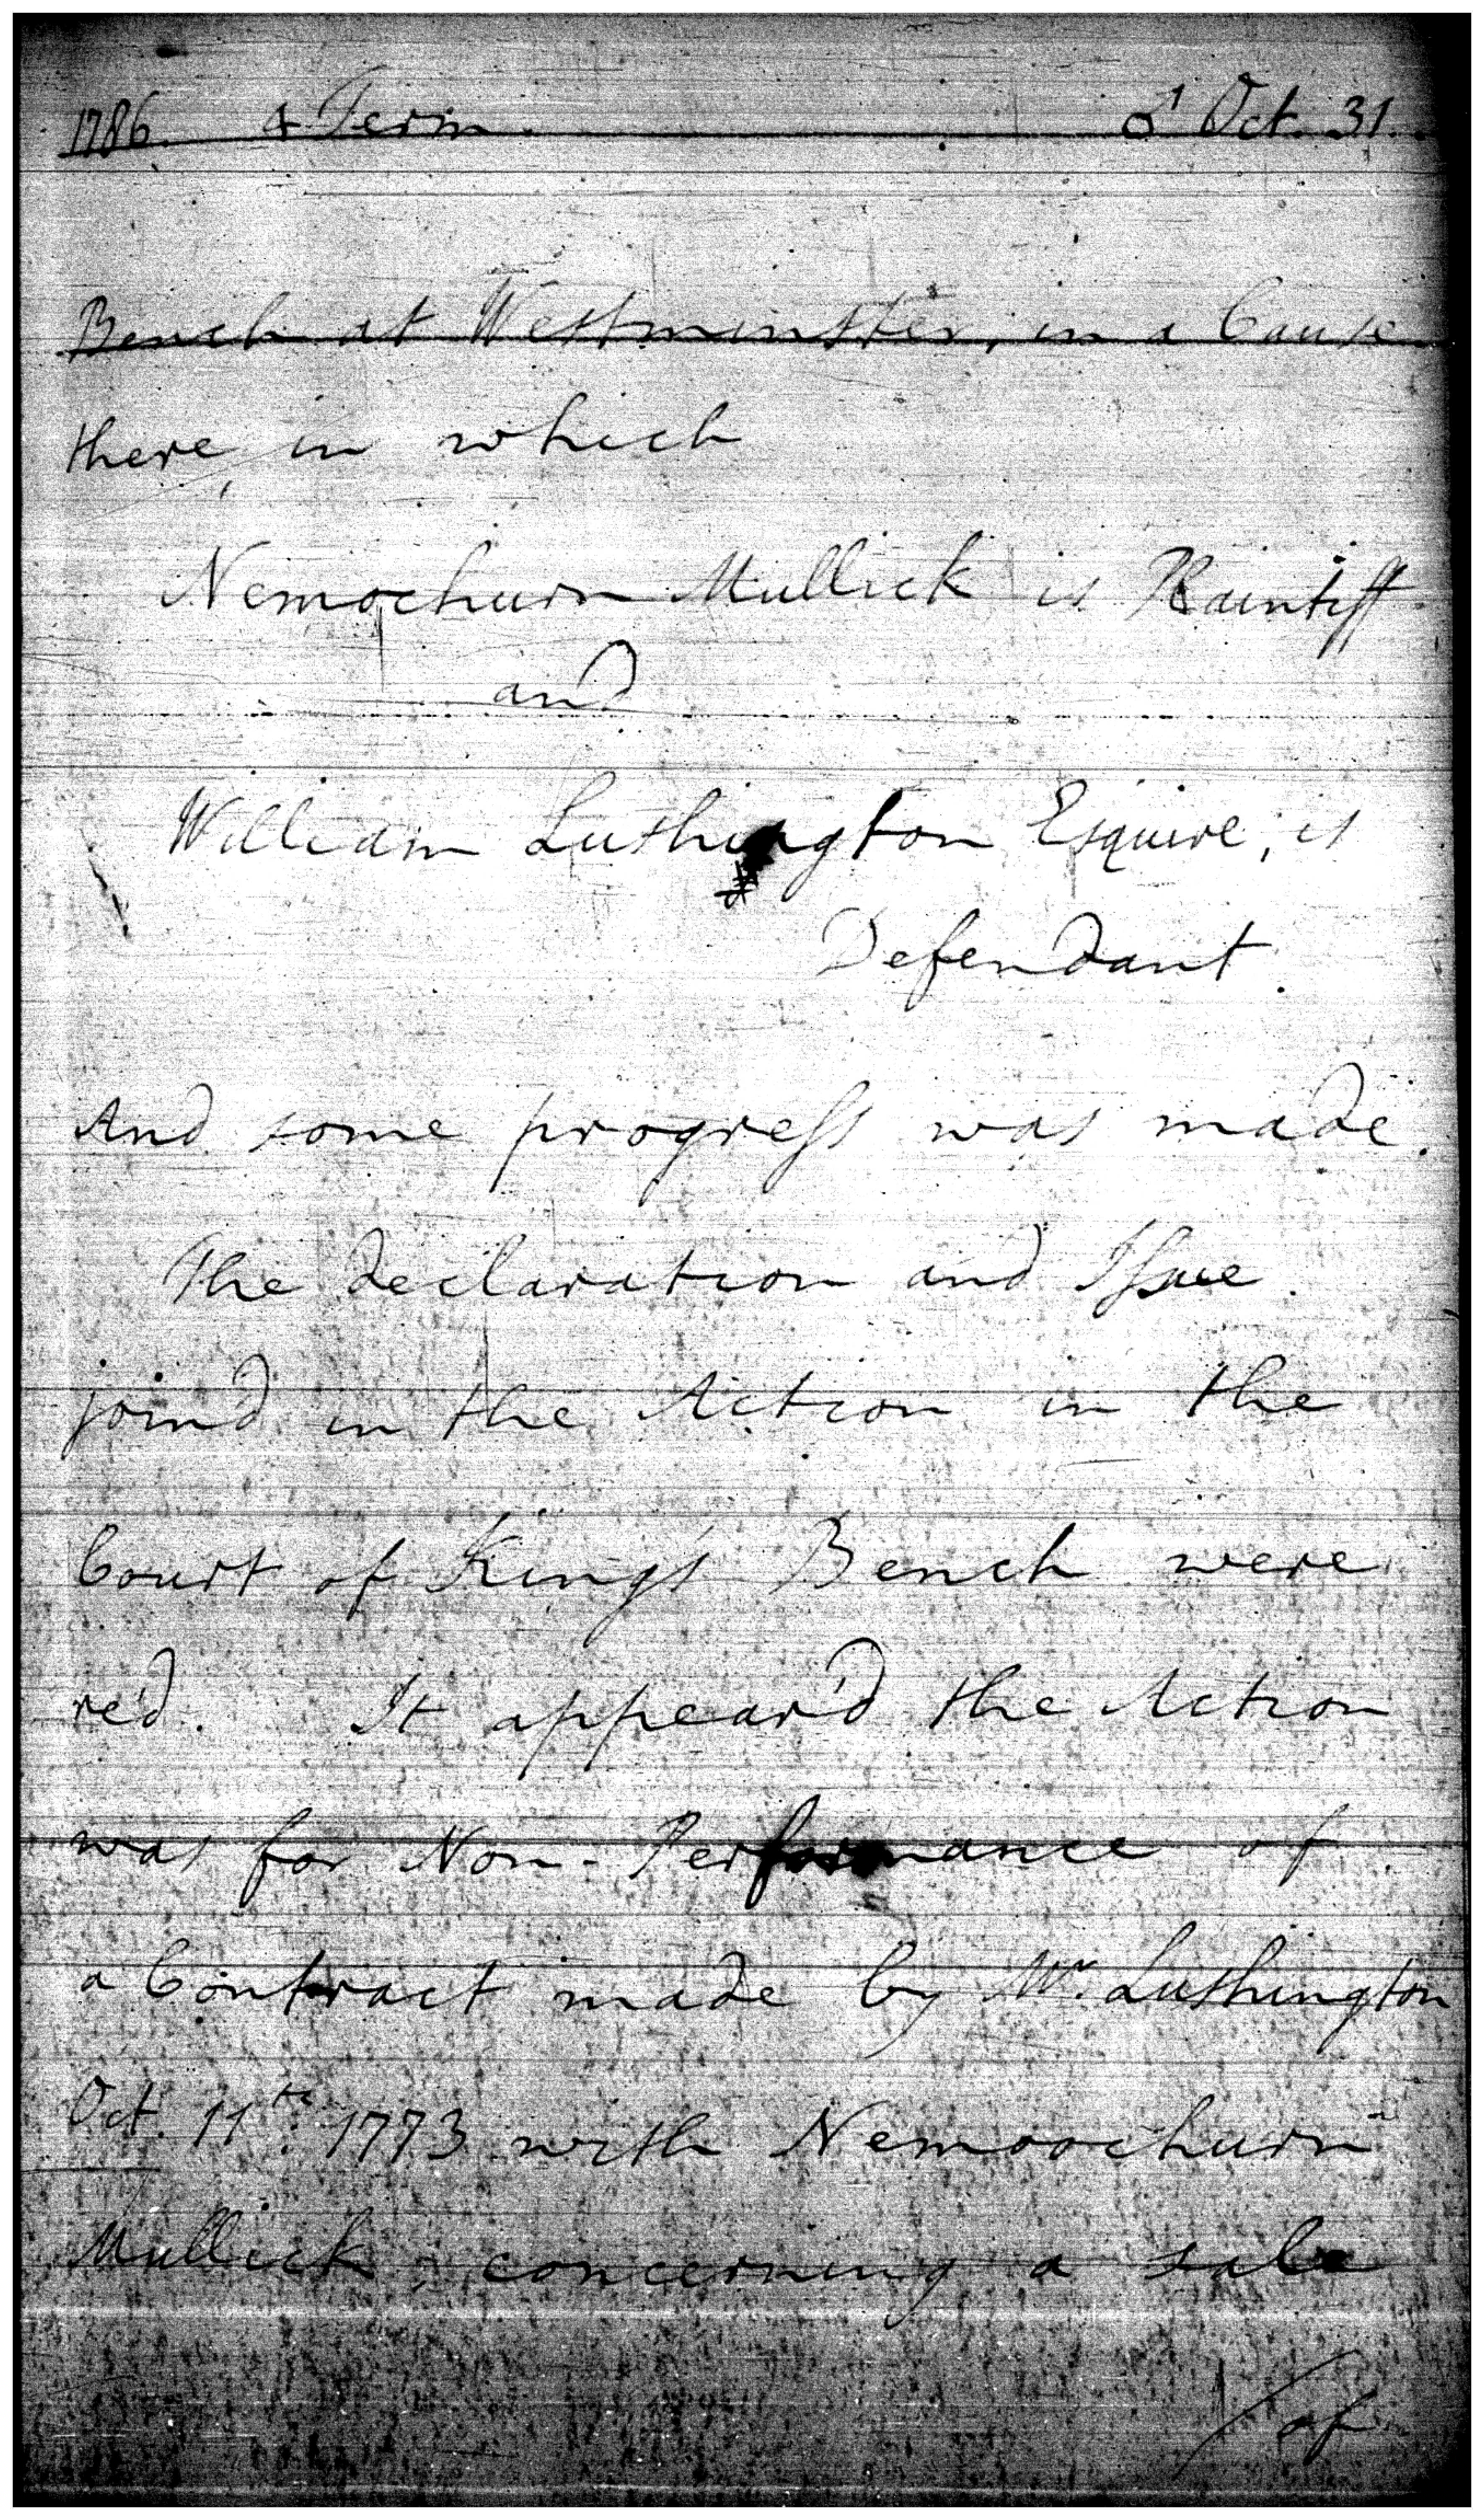 1786. 4 Term. ♂ Oct. 31.
Bench at Westminster, in a Cause
there in which
Nemochurn Mullick is Plaintiff
and
William Lushington Esquire, is
Defendant.
And some progress was made.
The declaration and Issue
join'd in the Action in the
Court of King's Bench were
re'd. It appear'd the Action
was for Non-Performance of
a Contract made by Mr. Lushington
Oct. 11th. 1773 with Nemoochurn
Mullick, concerning a sale
/of